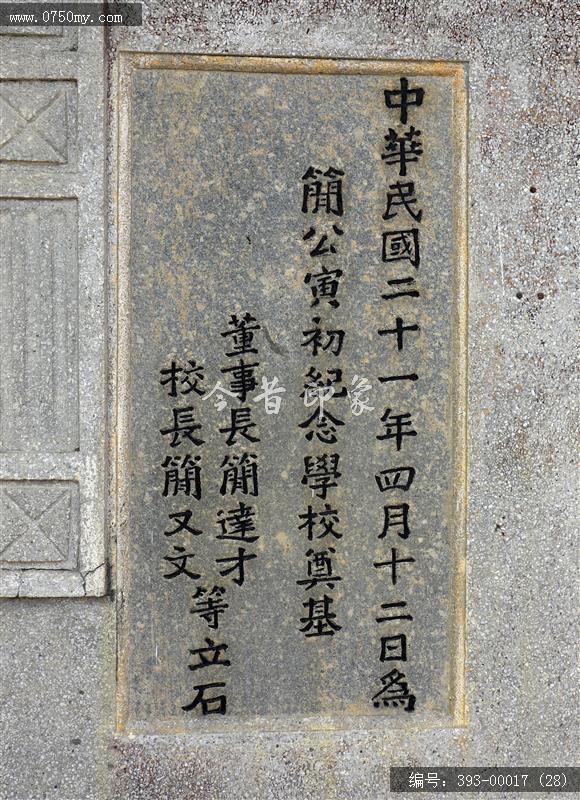 www.0750my.com
中華民國二十一年四月十二日為
簡公寅初紀念學校奠基
董事長簡達才
校長簡又文
等立石
今昔印象
编号：393-00017 (28)